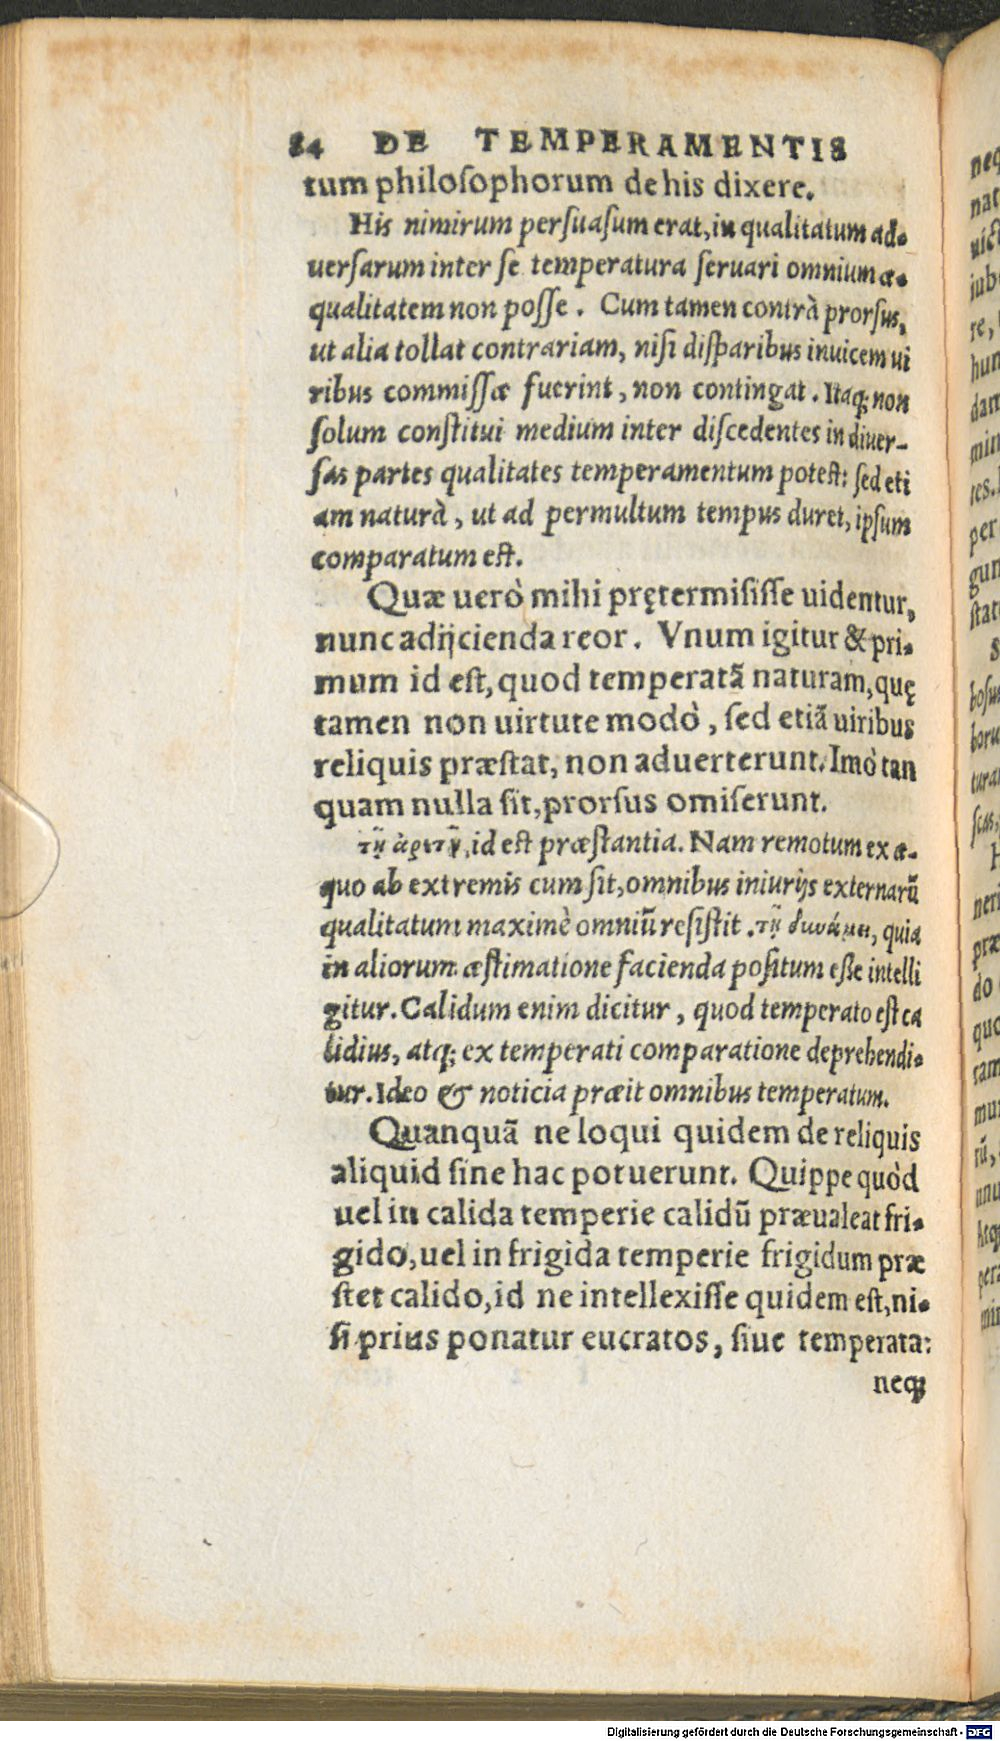 84 DE TEMPERAMENTIS
tum philoſophorum de his dixere.
His nimirum perſuaſum erat, in qualitatum ad-
uerſarum inter ſe temperatura ſeruari omnium æ-
qualitatem non poſſe. Cum tamen contrà prorſus,
ut alia tollat contrariam, niſi diſparibus inuicem ui
ribus commiſſæ fuerint, non contingat. Itaq; non
ſolum conſtitui medium inter diſcedentes in diuer-
ſas partes qualitates temperamentum poteſt: ſed eti
am naturà, ut ad permultum tempus duret, ipſum
comparatum eſt.
Quæ uerò mihi prętermiſiſſe uidentur,
nunc adijcienda reor. Vnum igitur & pri-
mum id eſt, quod temperatā naturam, quę
tamen non uirtute modò, ſed etiā uiribus
reliquis præſtat, non aduerterunt. Imò tan
quam nulla ſit, prorſus omiſerunt.
τῇ ἀρετῇ, id eſt præſtantia. Nam remotum ex æ-
quo ab extremis cum ſit, omnibus iniurijs externarū
qualitatum maximè omniū reſiſtit. τῇ δυνάμει, quia
in aliorum æſtimatione facienda poſitum eſſe intelli
gitur. Calidum enim dicitur, quod temperato eſt ca
lidius, atq; ex temperati comparatione deprehendi-
tur. Ideo & noticia præit omnibus temperatum.
Quanquā ne loqui quidem de reliquis
aliquid ſine hac potuerunt. Quippe quòd
uel in calida temperie calidū præualeat fri-
gido, uel in frigida temperie frigidum præ
ſtet calido, id ne intellexiſſe quidem eſt, ni-
ſi prius ponatur eucratos, ſiue temperata:
neq;
Digitalisierung gefördert durch die Deutsche Forschungsgemeinschaft - DFG